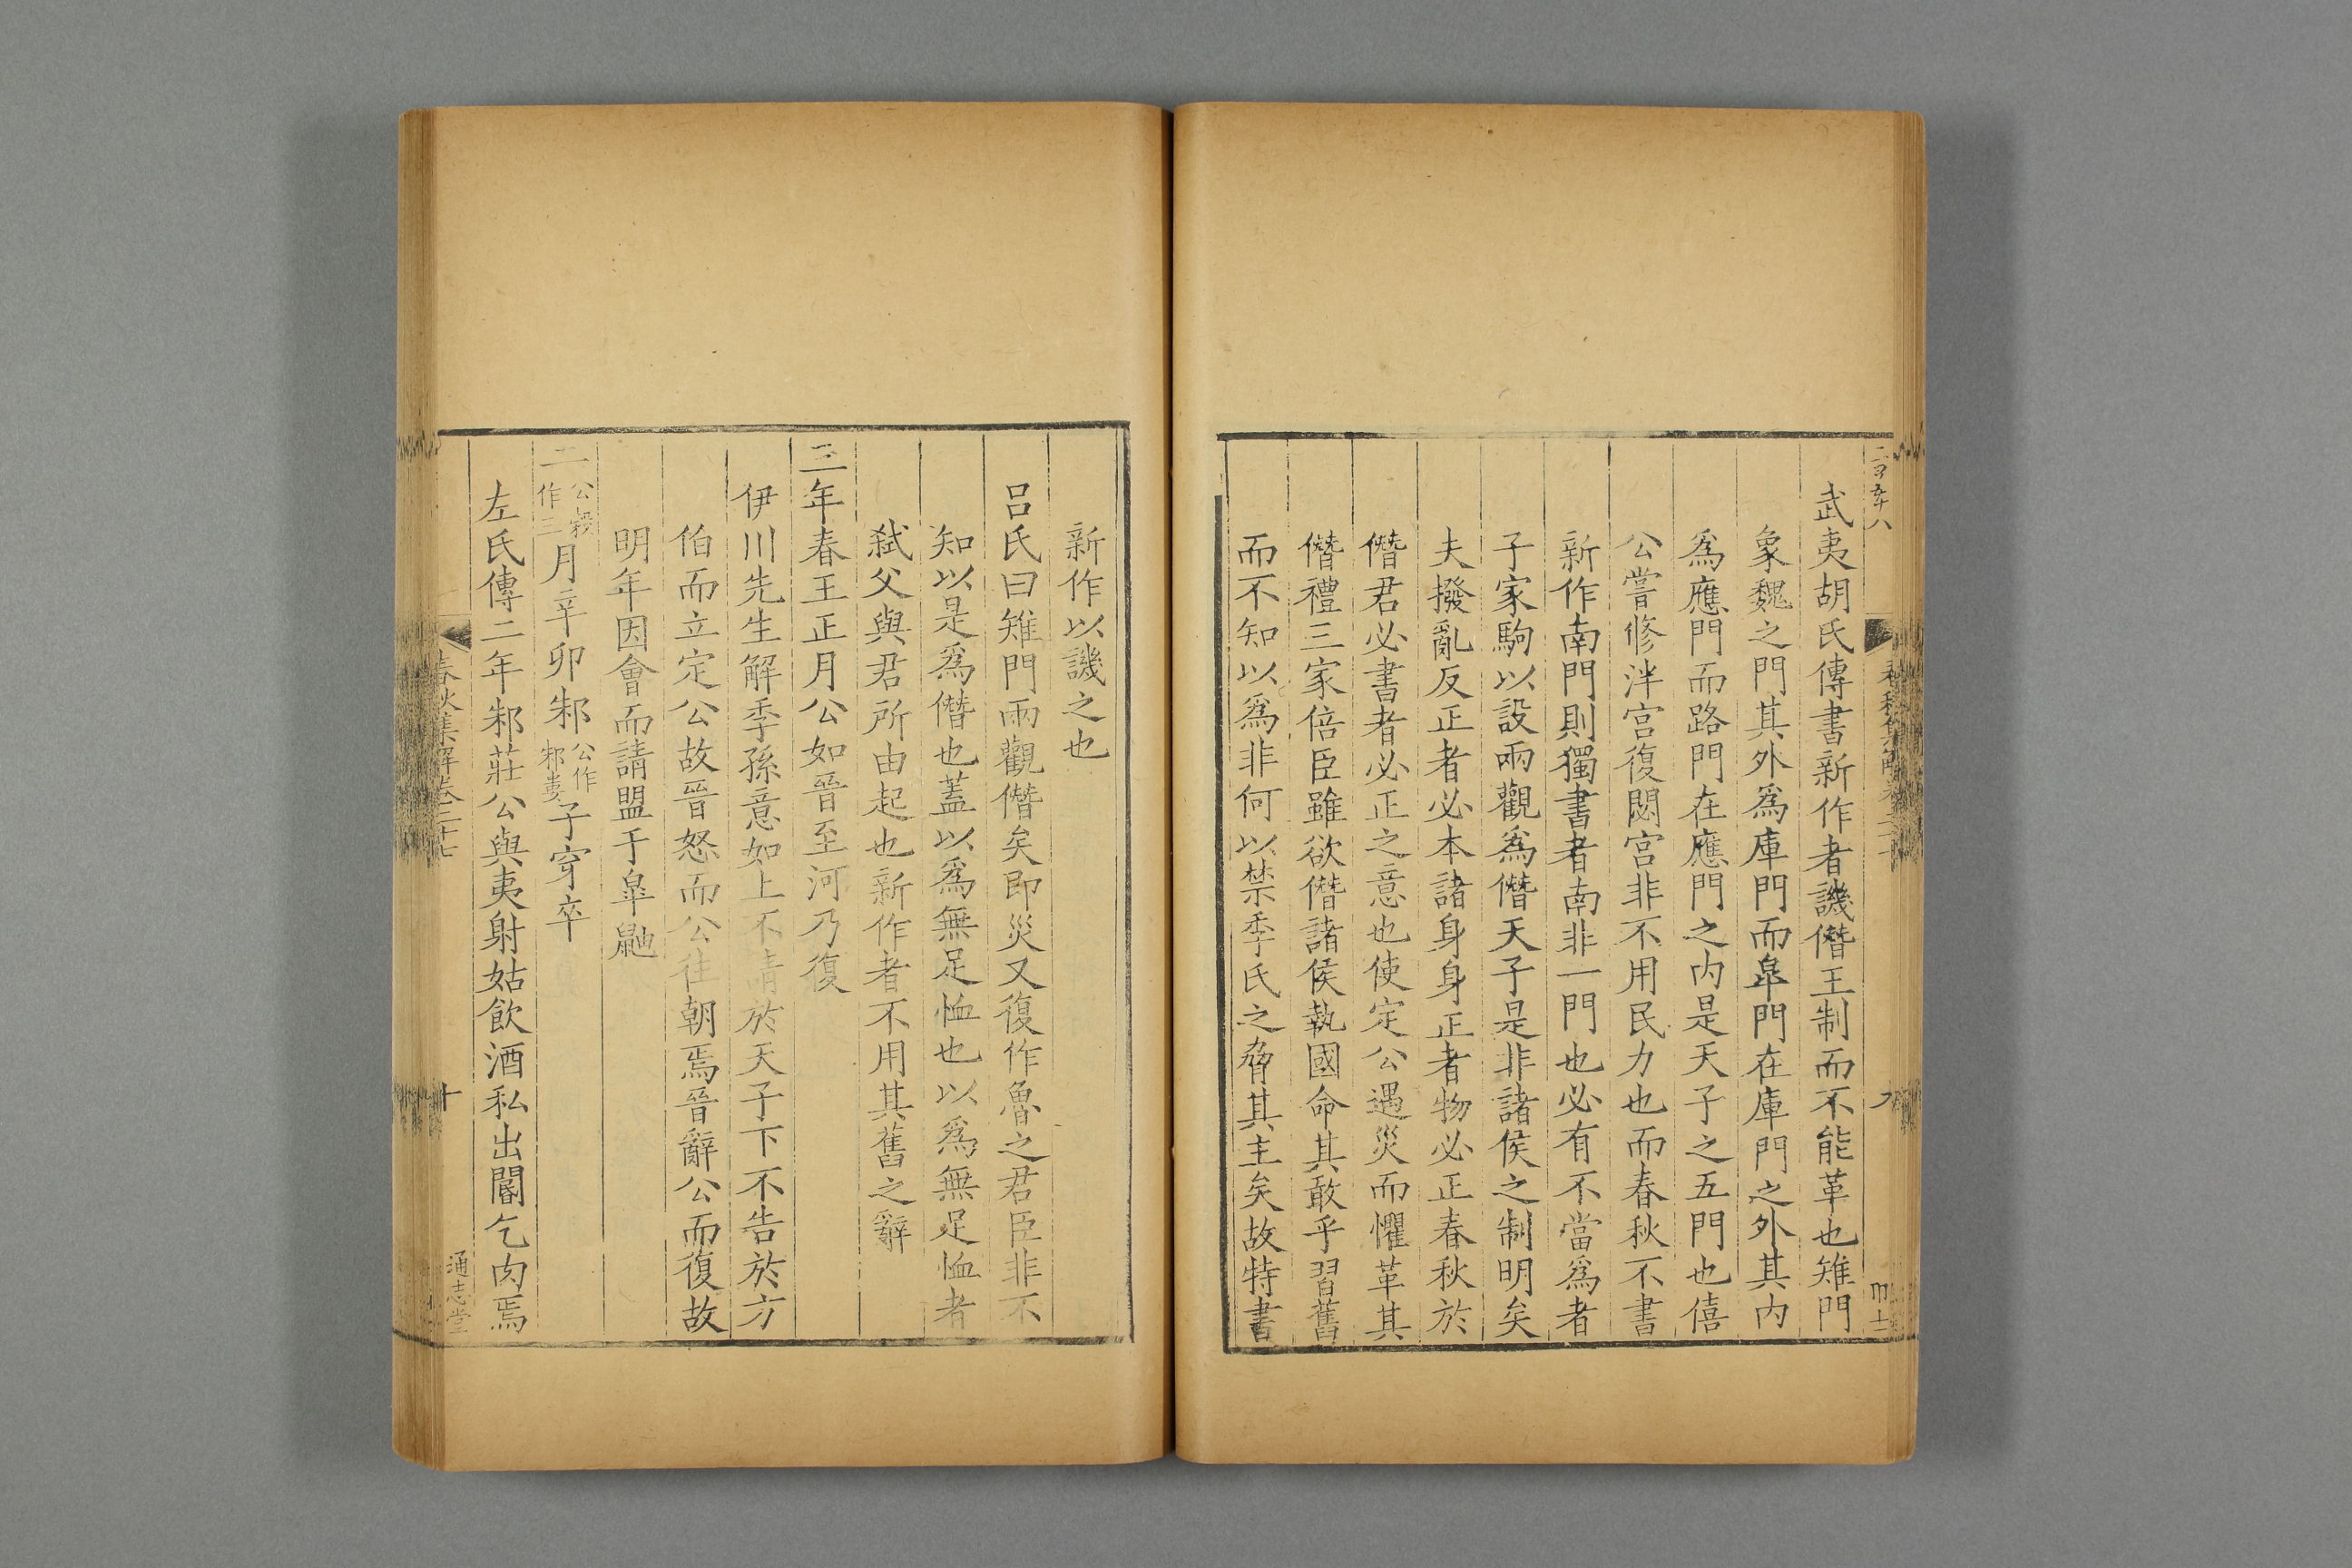 武夷胡氏傳書新作者譏僭王制而不能革也雉門
象魏之門其外爲庫門而皐門在庫門之外其内
爲應門而路門在應門之内是天子之五門也僖
公嘗修泮宫復閟宫非不用民力也而春秋不書
新作南門則獨書者南非一門也必有不當爲者
子家駒以設兩觀爲僭天子是非諸侯之制明矣
夫撥亂反正者必本諸身身正者物必正春秋於
僭君必書者必正之意也使定公遇災而懼革其
僭禮三家倍臣雖欲僭諸侯執國命其敢乎習舊
而不知以爲非何以禁季氏之脅其主矣故特書
新作以譏之也
吕氏曰雉門兩觀僭矣即災又復作魯之君臣非不
知以是爲僭也蓋以爲無足恤也以爲無足恤者
弑父與君所由起也新作者不用其舊之辭
三年春王正月公如晉至河乃復
伊川先生解季孫意如上不請於天子下不告於方
伯而立定公故晉怒而公往朝焉晉辭公而復故
明年因會而請盟于皐鼬
二公穀作三月辛卯邾公作邾婁子穿卒
左氏傳二年邾莊公與夷射姑飲酒私出閽乞肉焉
春秋集解卷二十七
十
通志堂